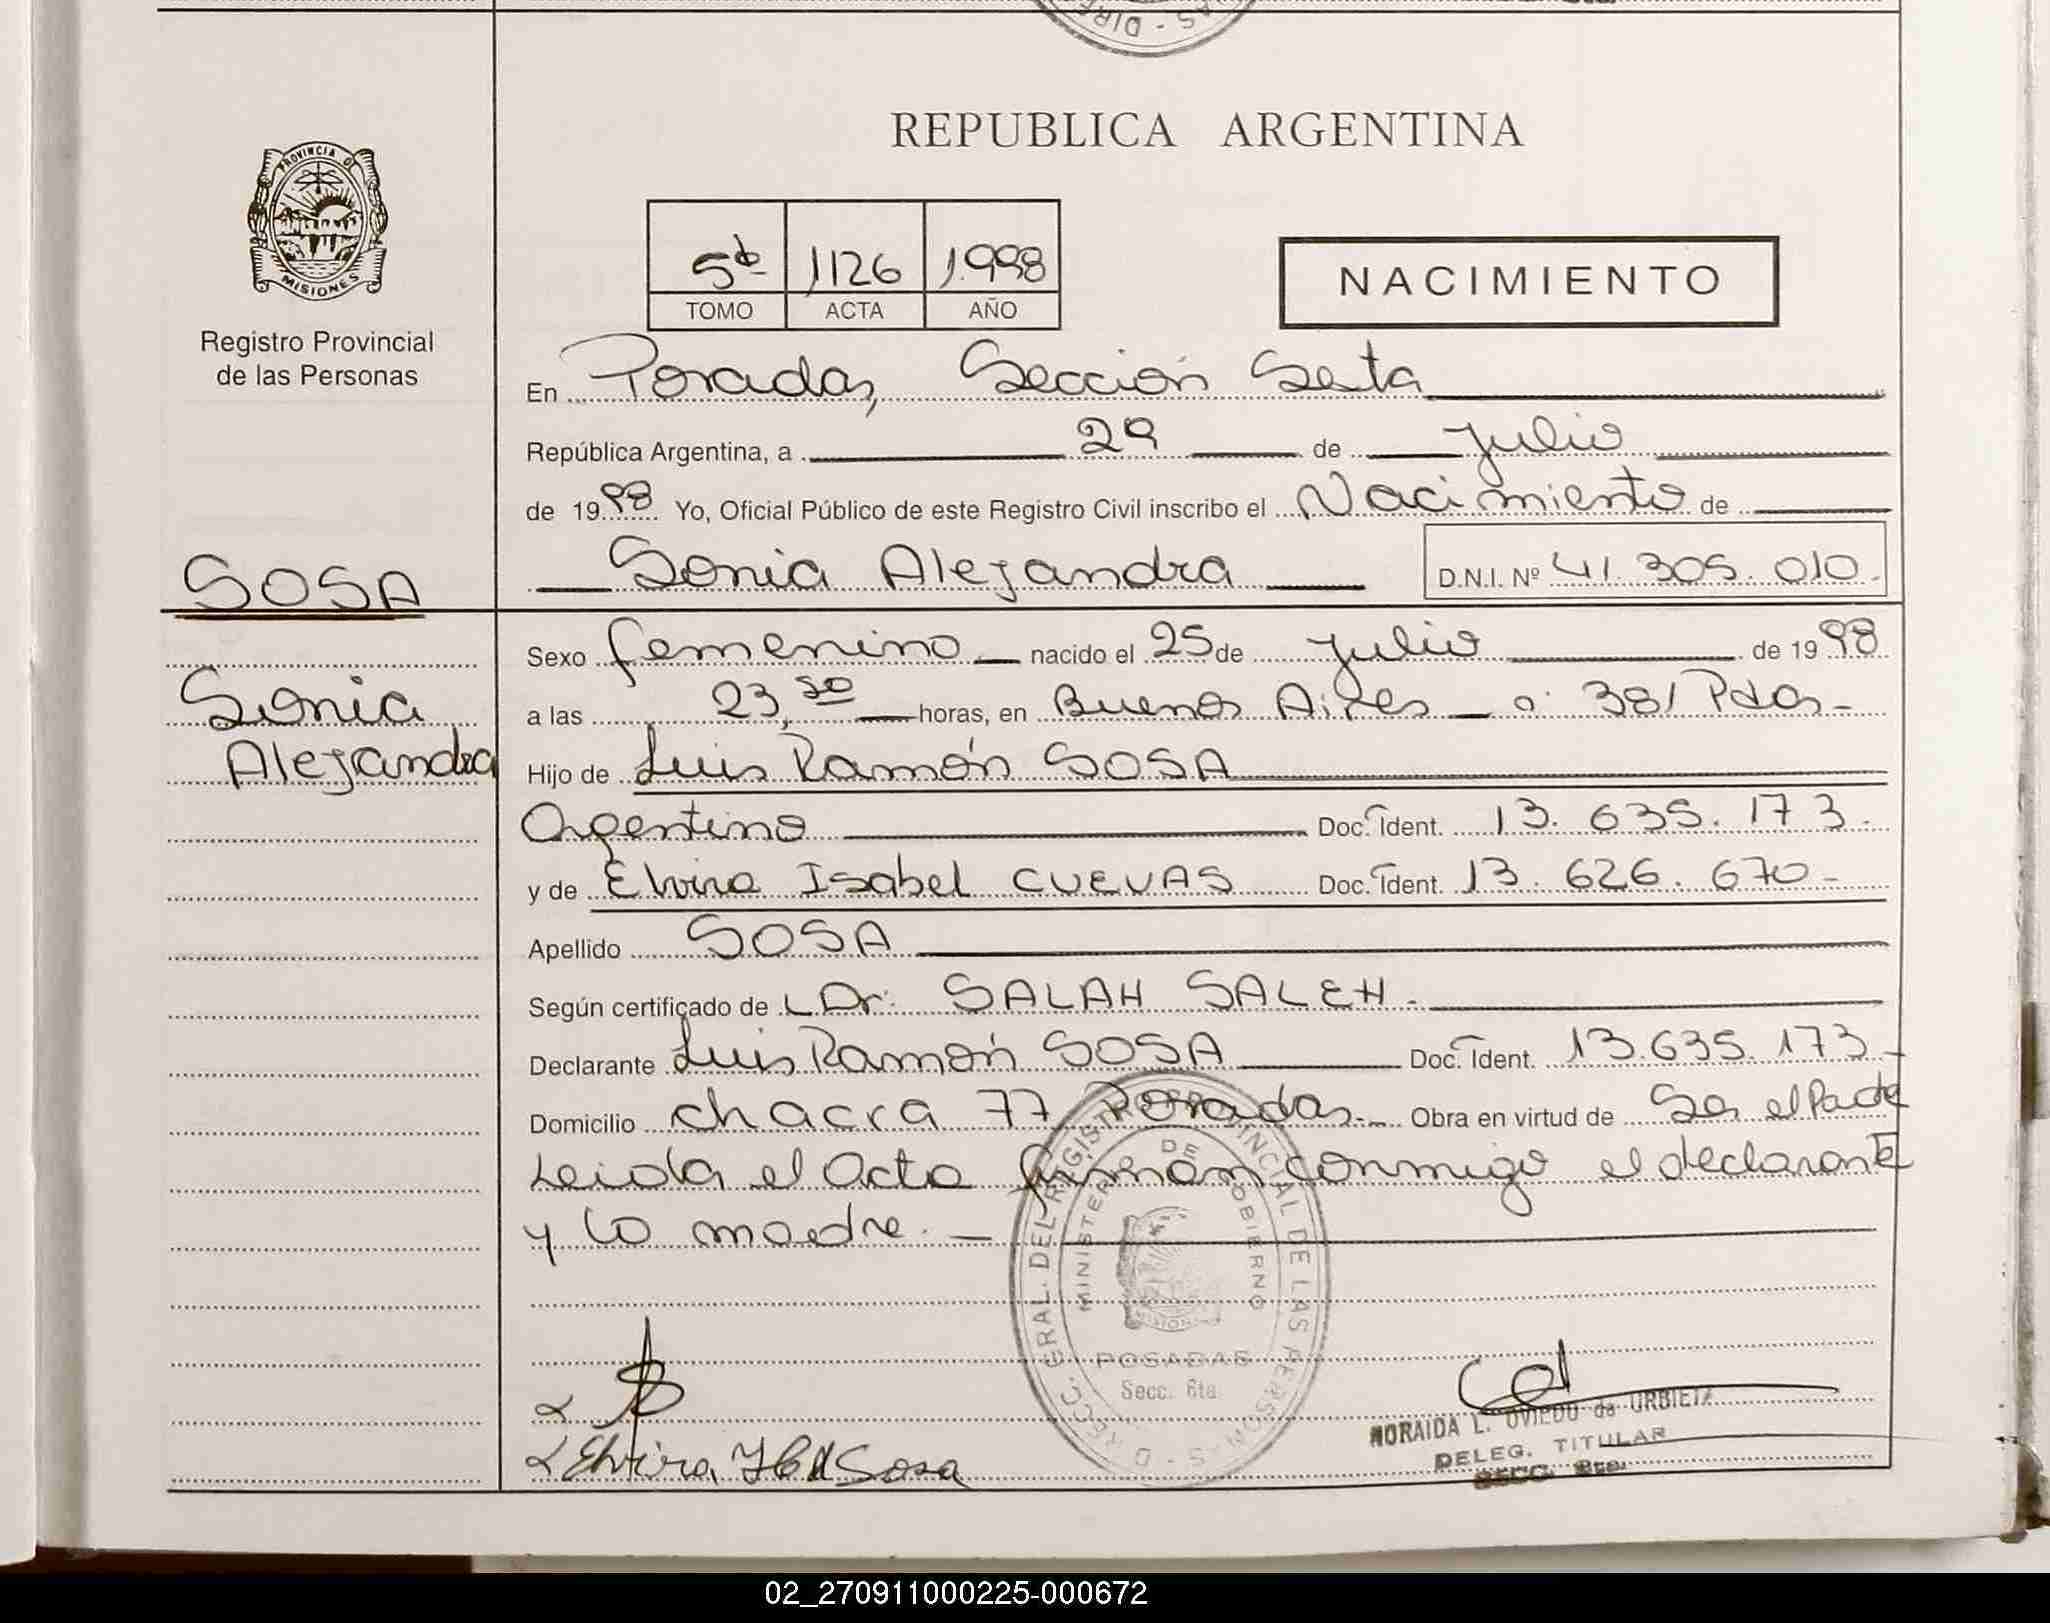 DIRE - - S
PROVINCIA DE
MISIONES
Registro Provincial
de las Personas
REPUBLICA ARGENTINA
5to 1126 1.998
TOMO ACTA AÑO
NACIMIENTO
En Posadas, Sección Sexta
República Argentina, a 29 de Julio
de 19 98 Yo, Oficial Público de este Registro Civil inscribo el Nacimiento de
Sonia Alejandra D.N.I. Nº 41.305.010.
SOSA
Sonia
Alejandra
Sexo femenino nacido el 25 de Julio de 19 98
a las 23,30 horas, en Buenos Aires 381 Pdas-
Hijo de Luis Ramón SOSA
Argentino Doc. Ident. 13.635.173.
y de Elvira Isabel CUEVAS Doc. Ident. 13.626.670-
Apellido SOSA
Según certificado de Dr. SALAH SALEH.
Declarante Luis Ramón SOSA Doc. Ident. 13.635.173-
Domicilio chacra 77 Posadas. Obra en virtud de Ser el Padre
Leida el Acta firman conmigo el declarante
y la madre.
DIRECC. GRAL. DEL REGISTRO PROVINCIAL DE LAS PERSONAS
MINISTERIO DE GOBIERNO
POSADAS
Secc. 6ta.
Elvira Sosa
NORAIDA L. OVIEDO de URBIETA
DELEG. TITULAR
SECC. 6ta.
02_270911000225-000672